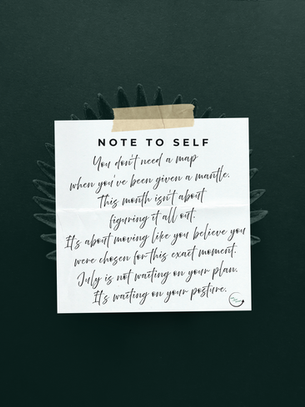 NOTE TO SELF
You don't need a map
when you've been given a mantle.
This month isn't about
figuring it all out.
It's about moving like you believe you
were chosen for this exact moment.
July is not waiting on your plan.
It's waiting on your posture.